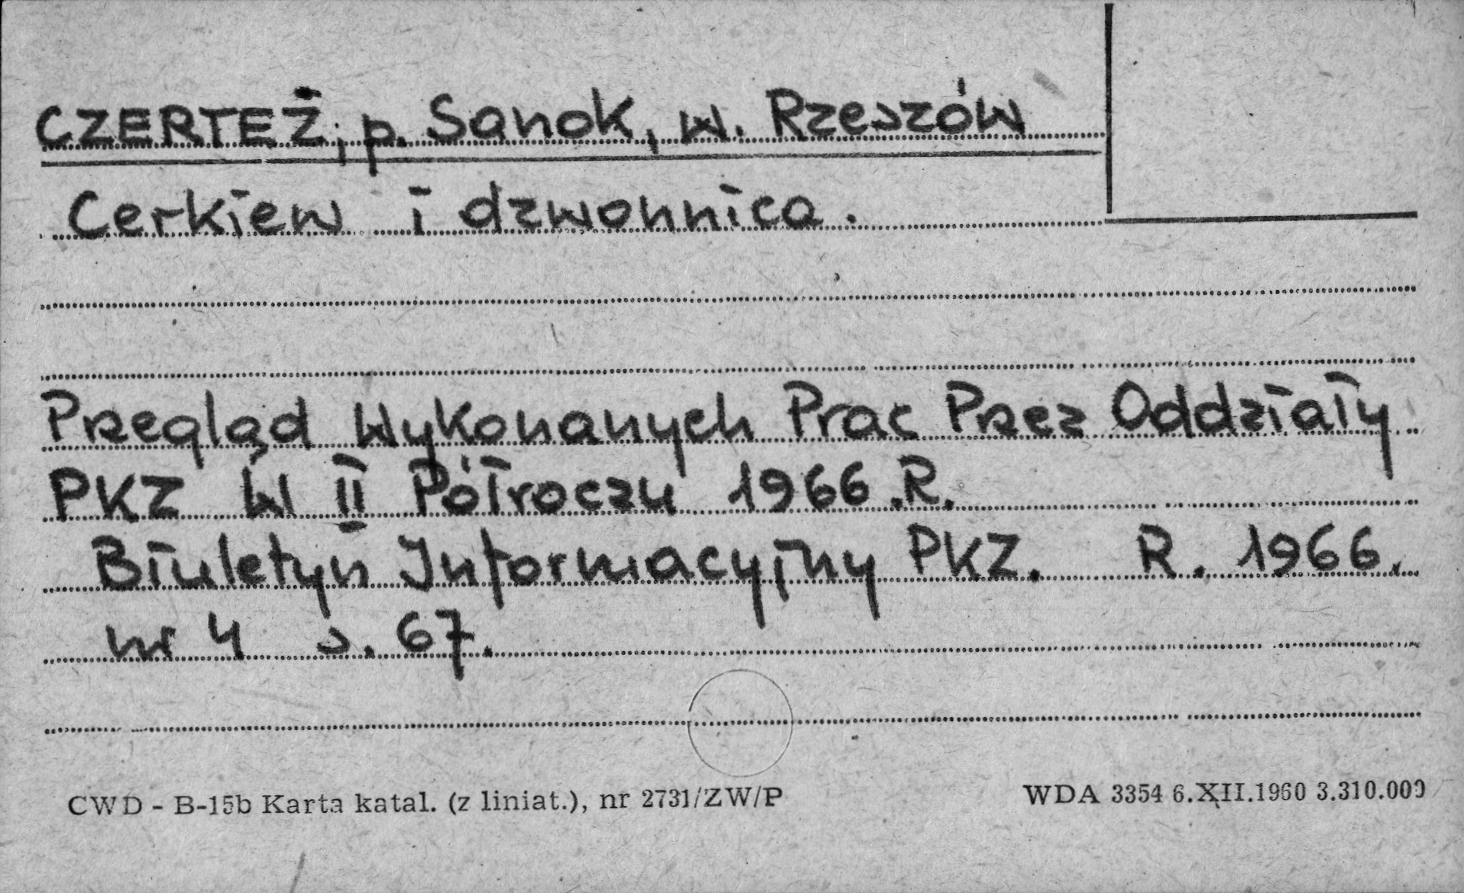 CZERTEŻ, p. Sanok, w. Rzeszów
Cerkiew i dzwonnica.
Przegląd Wykonanych Prac Przez Oddziały
PKZ W II Półroczu 1966.R.
Biuletyn Informacyjny PKZ. R. 1966.
nr 4 s. 67.
CWD - B-15b Karta katal. (z liniat.), nr 2731/ZW/P
WDA 3354 6.XII.1960 3.310.000